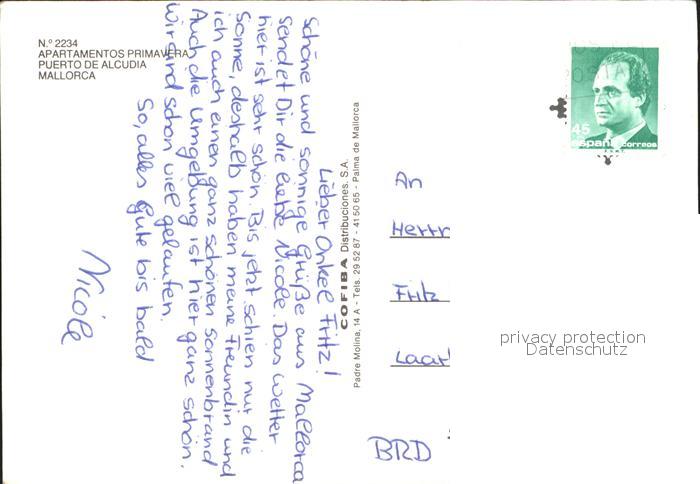 N.º 2234
APARTAMENTOS PRIMAVERA
PUERTO DE ALCUDIA
MALLORCA
Lieber Onkel Fritz!
Schöne und sonnige Grüße aus Mallorca
sendet Dir die liebe Nicole. Das Wetter
hier ist sehr schön. Bis jetzt schien nur die
Sonne, deshalb haben meine Freundin und
ich auch einen ganz schönen Sonnenbrand
Auch die Umgebung ist hier ganz schön.
Wir sind schon viel gelaufen.
So, alles Gute bis bald
Nicole
COFIBA Distribuciones, S.A.
Padre Molina, 14 A - Tels. 29 52 87 - 41 50 65 - Palma de Mallorca
45
españa correos
An
Herrn
Fritz
Laar
BRD
privacy protection
Datenschutz